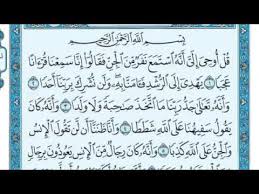 بِسْمِ ٱللَّهِ ٱلرَّحْمَٰنِ ٱلرَّحِيمِ
قُلْ أُوحِيَ إِلَيَّ أَنَّهُ ٱسْتَمَعَ نَفَرٌ مِّنَ ٱلْجِنِّ فَقَالُوٓا۟ إِنَّا سَمِعْنَا قُرْءَانًا
عَجَبًا ١ يَهْدِىٓ إِلَى ٱلرُّشْدِ فَـَٔامَنَّا بِهِۦ وَلَن نُّشْرِكَ بِرَبِّنَآ أَحَدًا
٢ وَأَنَّهُۥ تَعَٰلَىٰ جَدُّ رَبِّنَا مَا ٱتَّخَذَ صَٰحِبَةً وَلَا وَلَدًا ٣ وَأَنَّهُۥ كَانَ
يَقُولُ سَفِيهُنَا عَلَى ٱللَّهِ شَطَطًا ٤ وَأَنَّا ظَنَنَّآ أَن لَّن تَقُولَ ٱلْإِنسُ
وَٱلْجِنُّ عَلَى ٱللَّهِ كَذِبًا ٥ وَأَنَّهُۥ كَانَ رِجَالٌ مِّنَ ٱلْإِنسِ يَعُوذُونَ بِرِجَالٍ